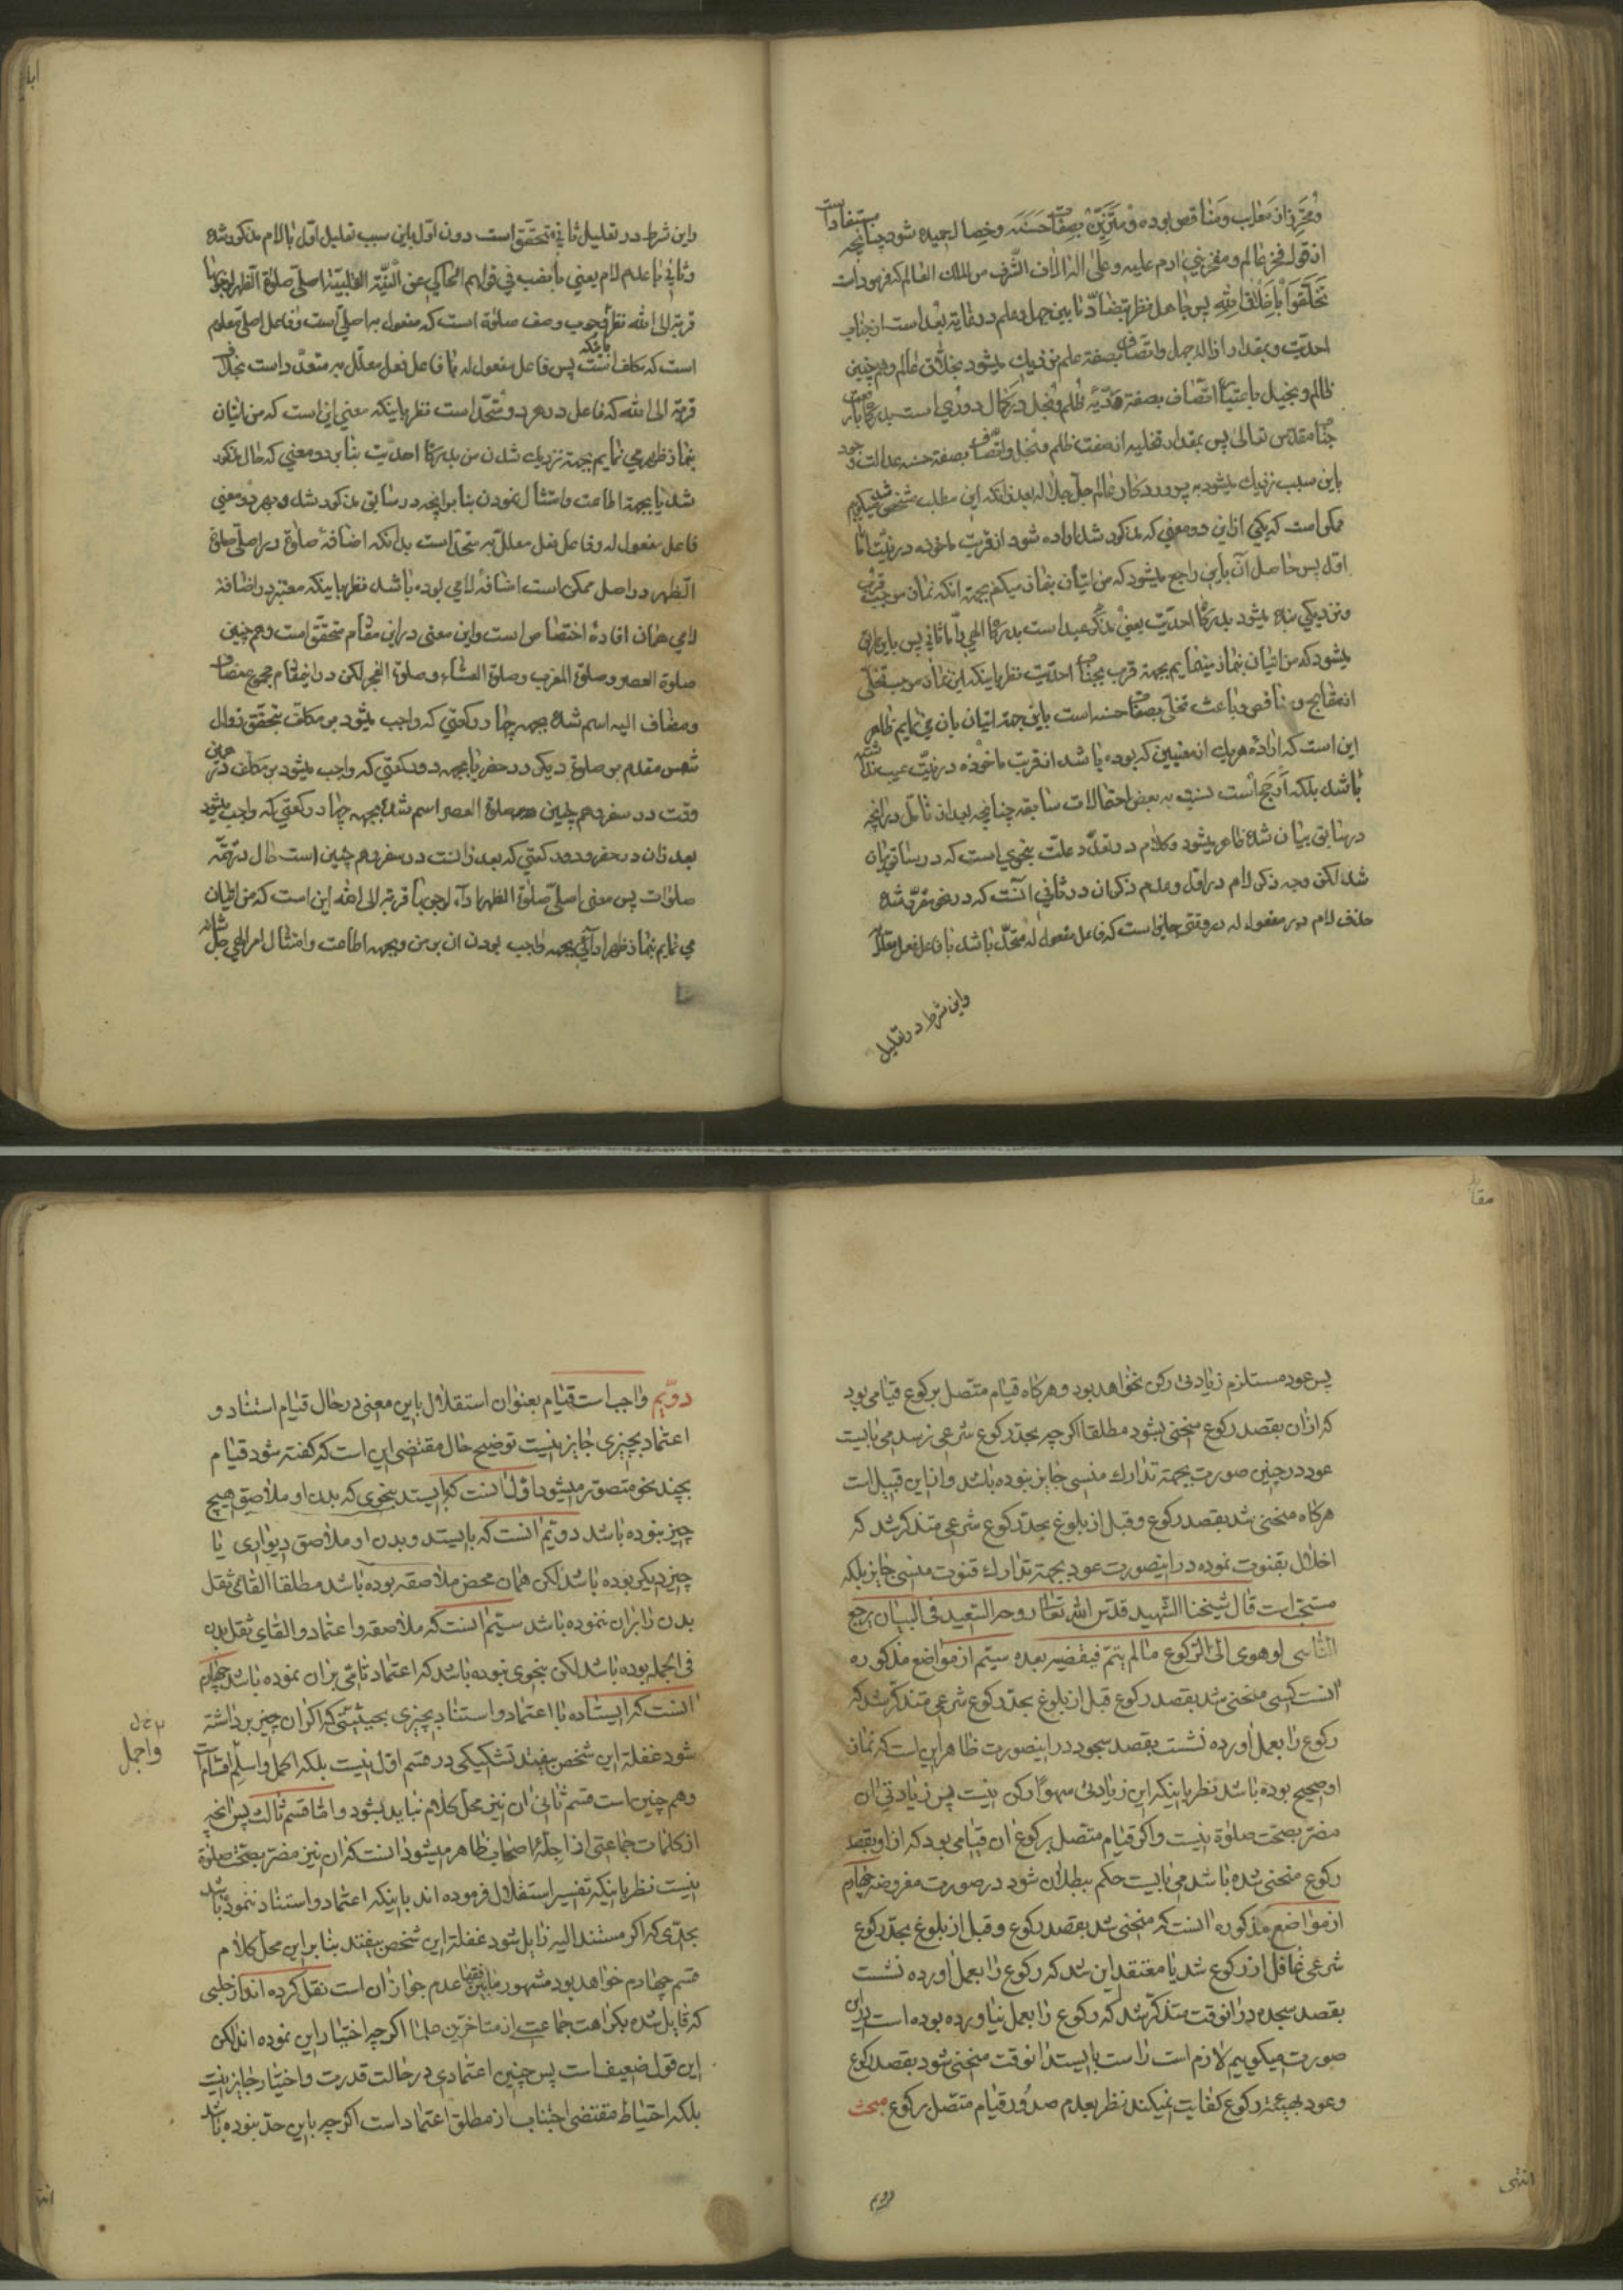 ومحترز از معایب ومناقص بوده ومتزین بصفات حسنه وخصال حمیده شود چنانچه مستفاد است
از قول فخر عالم ومفخر بنی ادم علیه وعلی اله الاف الشرف من الملک العالم که فرموده است
تخلقوا باخلاق الله پس جاهل نظر بتضاد ما بین جهل وعلم در غایة بعد است از جناب
احدیت وبمقدار ازاله جهل واتصاف بصفة علم نزدیک میشود بخلاق عالم وهم چنین
ظالم وبخیل باعتبار اتصاف بصفة ردیه ظلم وبخل در کمال دوری است بدرگاه
جناب مقدس تعالی پس بمقدار تخلیه از صفت ظلم وبخل واتصاف بصفة حسنه عدالت وجود
باین سبب نزدیک میشود به پروردگار عالم جل جلاله بعد از انکه این مطلب مشخص شد میگویم
ممکن است که یکی از این دو معنی که مذکور شد اراده شود از قربت ماخوذه در نیت اما
اول پس حاصل آن باین راجع میشود که من اتیان بنماز میکنم بجهة انکه نماز موجب قرب
ونزدیکی بنده میشود بدرگاه احدیت یعنی مذکر عبد است بدرگاه الهی واما ثانی پس باین راجع
میشود که من اتیان بنماز مینمایم بجهة قرب بجناب احدیت نظر باینکه این نماز موجب تخلی
از مقابح ومناقص وباعث تحلی بصفات حسنه است باین جهة اتیان بان می نمایم ظاهر
این است که اراده هر یک از معنیین که بوده باشد از قربت ماخوذه در نیت عیب نداشته
باشد بلکه ارجح است نسبت به بعض احتمالات سابقه چنانچه بعد از تامل در انچه
در سابق بیان شده ظاهر میشود وکلام در تعدد علت بنحوی است که در سابق بیان
شد لکن وجه ذکر لام در اول وعدم ذکر ان در ثانی آنست که در نحو مقرر شده
حذف لام در مفعول له در وقتی جایز است که فاعل مفعول له متحد باشد با فاعل فعل معلل
واین شرط در تعلیل
واین شرط در تعلیل ثانی متحقق است دون اول باین سبب تعلیل اول با لام مذکور شده
وثانی با عدم لام یعنی با نصب في قولهم الحاکي عن النیة القلبیة اصلي صلوة الظهر لوجوبها
قربة الی الله نظر بوجوب وصف صلوة است که مفعول به اصلي است وفاعل اصلي معلوم
است که مکلف است پس فاعل مفعول له با فاعل فعل معلل به متعدد است بخلاف
قربة الی الله که فاعل در هر دو متحد است نظر باینکه معنی این است که من اتیان
بنماز ظهر می نمایم بجهة نزدیک شدن من بدرگاه احدیت بنا بر دو معنی که حال مذکور
شد یا بجهة اطاعت وامتثال نمودن بنا بر انچه در سابق مذکور شد وبهر دو معنی
فاعل مفعول له وفاعل فعل معلل به متحد است بدانکه اضافهٔ صلوة در اصلي صلوة
الظهر در اصل ممکن است اضافهٔ لامی بوده باشد نظر باینکه معتبر در اضافه
لامی همان افادهٔ اختصاص است واین معنی در این مقام متحقق است وهم چنین
صلوة العصر وصلوة المغرب وصلوة العشاء وصلوة الفجر لکن در این مقام مجموع مضاف
ومضاف الیه اسم شده بجهه چهار رکعتی که واجب میشود بر مکلف بتحقق زوال
شمس مقدم بر صلوة دیگر در حضر یا بجهه دو رکعتی که واجب میشود بر مکلف در همین
وقت در سفر وهم چنین صلوة العصر اسم شده بجهه چهار رکعتی که واجب میشود
بعد از ان در حضر ودو رکعتی که بعد از انست در سفر وهم چنین است حال در تتمه
صلوات پس معنی اصلي صلوة الظهر اداء لوجوبها قربة الی الله این است که من اتیان
می نمایم بنماز ظهر ادائی بجهه واجب بودن ان بر من وبجهه اطاعت وامتثال امر الهی جل شانه
مقابله
پس عود مستلزم زیادتی رکن نخواهد بود وهرگاه قیام متصل برکوع قیامی بود
که از ان بقصد رکوع منحنی بشود مطلقا اگرچه بحد رکوع شرعی نرسد می بایست
عود در چنین صورت بجهة تدارک منسی جایز نبوده باشد واز این قبیل است
هرگاه منحنی شد بقصد رکوع وقبل از بلوغ بحد رکوع شرعی متذکر شد که
اخلال بقنوت نموده در اینصورت عود بجهة تدارک قنوت منسی جایز بلکه
مستحب است قال شیخنا الشهید قدس الله تعالی روحه السعید فی البیان یرجع
الناسی لو هوی الی الرکوع ما لم یتم فیقضیه بعده سیتم از مواضع مذکوره
انست کسی منحنی شد بقصد رکوع قبل از بلوغ بحد رکوع شرعی متذکر شد که
رکوع را بعمل اورده نشست بقصد سجود در اینصورت ظاهر این است که نماز
او صحیح بوده باشد نظر باینکه این زیادتی سهوا رکن نیست پس زیادتی ان
مضر بصحت صلوة نیست واگر قیام متصل برکوع ان قیامی بود که از او بقصد
رکوع منحنی شده باشد می بایست حکم ببطلان شود در صورت مفروضه چهارم
از مواضع مذکوره انست که منحنی شد بقصد رکوع وقبل از بلوغ بحد رکوع
شرعی غافل از رکوع شد یا معتقد این شد که رکوع را بعمل اورده نشست
بقصد سجده در انوقت متذکر شد که رکوع را بعمل نیاورده بوده است در این
صورت میگوییم لازم است راست بایستد انوقت منحنی شود بقصد رکوع
وعود بهیئة رکوع کفایت نمیکند نظر بعدم صدور قیام متصل برکوع مبحث
دویم
انتهی
دویم واجب است قیام بعنوان استقلال باین معنی در حال قیام استناد و
اعتماد بچیزی جایز نیست توضیح حال مقتضی این است که گفته شود قیام
بچند نحو متصور میشود اول انست که بایستد بنحوی که بدن او ملاصق هیچ
چیز نبوده باشد دویم انست که بایستد وبدن او ملاصق دیواری یا
چیز دیگر بوده باشد لکن همان محض ملاصقه بوده باشد مطلقا القائی ثقل
بدن را بران ننموده باشد سیتم انست که ملاصقه واعتماد والقای ثقل بدن
فی الجمله بوده باشد لکن بنحوی نبوده باشد که اعتماد تامی بران نموده باشد چهارم
انست که ایستاده با اعتماد واستناد بچیزی بحیثیتی که اگر ان چیز برداشته
شود غفلة این شخص بیفتد تشکیکی در قسم اول نیست بلکه اکمل واسلم اقسام است
واجمل
وهم چنین است قسم ثانی ان نیز محل کلام نباید بشود واما قسم ثالث پس انچه
از کلمات جماعتی از اجلهٔ اصحاب ظاهر میشود انست که ان نیز مضر بصحت صلوة
نیست نظر باینکه تفسیر استقلال فرموده اند باینکه اعتماد واستناد ننموده باشد
بحدی که اگر مستند الیه زایل شود غفلة این شخص بیفتد بنابر این محل کلام
قسم چهارم خواهد بود مشهور ما بین فقها عدم جواز ان است نقل کرده اند از حلبی
که قایل شده بکراهت جماعت از متاخرین علما اگرچه اختیار این نموده اند لکن
این قول ضعیف است پس چنین اعتمادی در حالت قدرت واختیار جایز نیست
بلکه احتیاط مقتضی اجتناب از مطلق اعتماد است اگرچه باین حد نبوده باشد